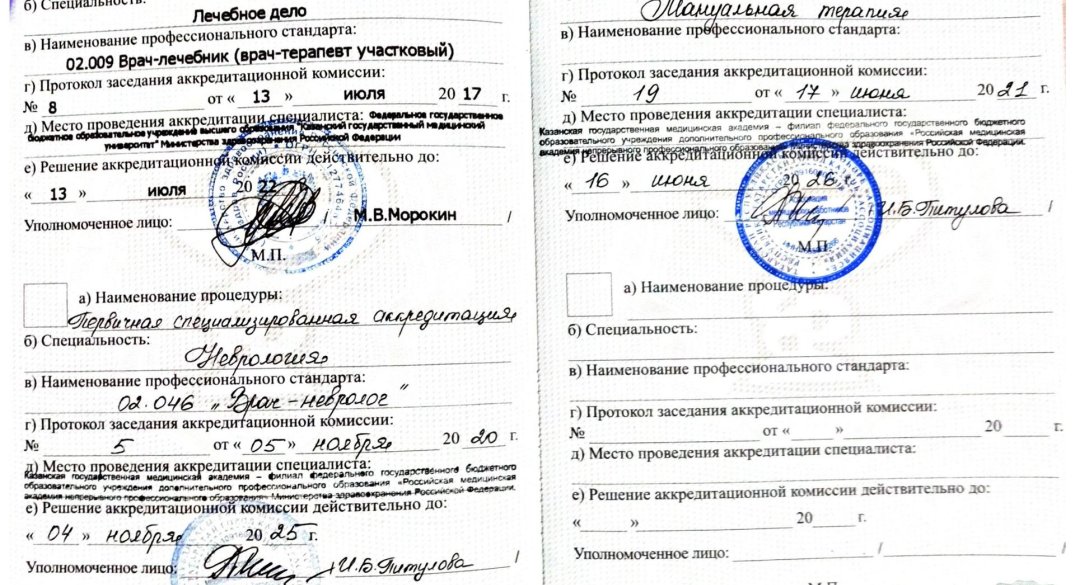 б) Специальность:
Лечебное дело
в) Наименование профессионального стандарта:
02.009 Врач-лечебник (врач-терапевт участковый)
г) Протокол заседания аккредитационной комиссии:
№ 8 от « 13 » июля 2017 г.
д) Место проведения аккредитации специалиста: Федеральное государственное
бюджетное образовательное учреждение высшего образования "Казанский государственный медицинский
университет" Министерства здравоохранения Российской Федерации
е) Решение аккредитационной комиссии действительно до:
« 13 » июля 2022
Уполномоченное лицо: / М.В.Морокин /
М.П.
а) Наименование процедуры:
Первичная специализированная аккредитация
б) Специальность:
Неврология
в) Наименование профессионального стандарта:
02.046 „Врач-невролог"
г) Протокол заседания аккредитационной комиссии:
№ 5 от « 05 » ноября 2020 г.
д) Место проведения аккредитации специалиста:
Казанская государственная медицинская академия – филиал федерального государственного бюджетного
образовательного учреждения дополнительного профессионального образования «Российская медицинская
академия непрерывного профессионального образования» Министерства здравоохранения Российской Федерации.
е) Решение аккредитационной комиссии действительно до:
« 04 » ноября 2025 г.
Уполномоченное лицо: / И.Б.Титулова /
Мануальная терапия
в) Наименование профессионального стандарта:
г) Протокол заседания аккредитационной комиссии:
№ 19 от « 17 » июня 2021 г.
д) Место проведения аккредитации специалиста:
Казанская государственная медицинская академия – филиал федерального государственного бюджетного
образовательного учреждения дополнительного профессионального образования «Российская медицинская
академия непрерывного профессионального образования» Министерства здравоохранения Российской Федерации.
е) Решение аккредитационной комиссии действительно до:
« 16 » июня 2026 г.
Уполномоченное лицо: И.Б.Титулова /
Ассоциация
медицинских работников
Республики Татарстан
М.П.
а) Наименование процедуры:
б) Специальность:
в) Наименование профессионального стандарта:
г) Протокол заседания аккредитационной комиссии:
№ от « » 20 г.
д) Место проведения аккредитации специалиста:
е) Решение аккредитационной комиссии действительно до:
« » 20 г.
Уполномоченное лицо: / /
М.П.